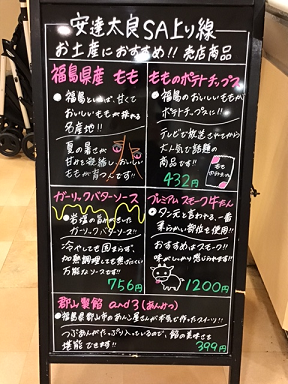 安達太良SA上り線
お土産におすすめ!! 売店商品
福島県産 もも
●福島といえば、甘くて
おいしいももが採れる
名産地!!
夏の暑さが
甘みを凝縮し、おいしい
ももが育つんです!!
もものポテトチップス
●福島のおいしいももが
ポテトチップスに!!
テレビで放送されてから
大人気で話題の
商品です!!
432円
もも
ポテトチップス
ガーリックバターソース
ガーリックバターソース!!
冷やしても固まらず、
加熱調理しても焦げにくい
万能なソースです!!
756円
プレミアム スモーク牛たん
●タン元と言われる、一番
柔らかい部位を使用!!
おすすめはスモーク!!
味がしっかり感じられます!!
1200円
郡山製餡 and3(あんみつ)
●福島県郡山市のあんこ屋さんが本気で作ったスイーツ!!
つぶあんがたっぷり入っているので、餡の美味さを
堪能できます!!
399円